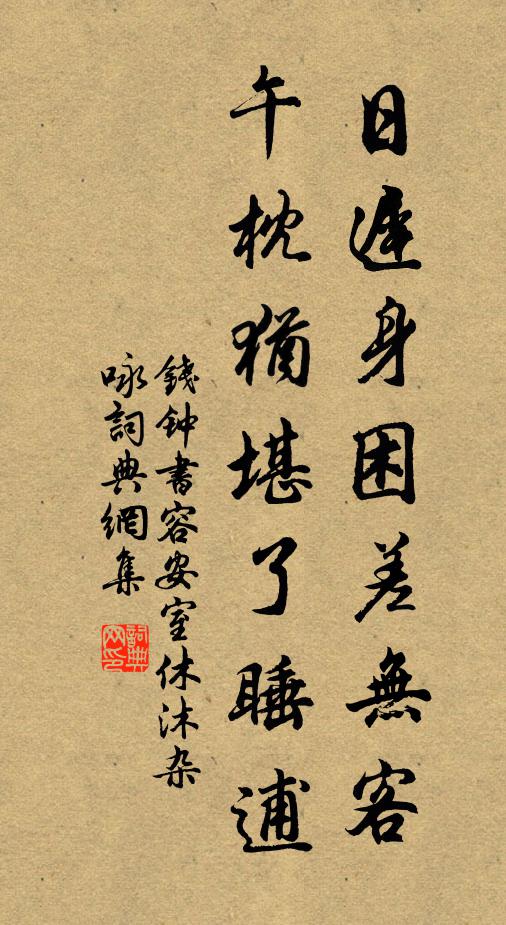 日遲身困差無客
午枕猶堪了睡逋
錢鈡書容安室休沐杂
咏詞典網集
詞典
网印